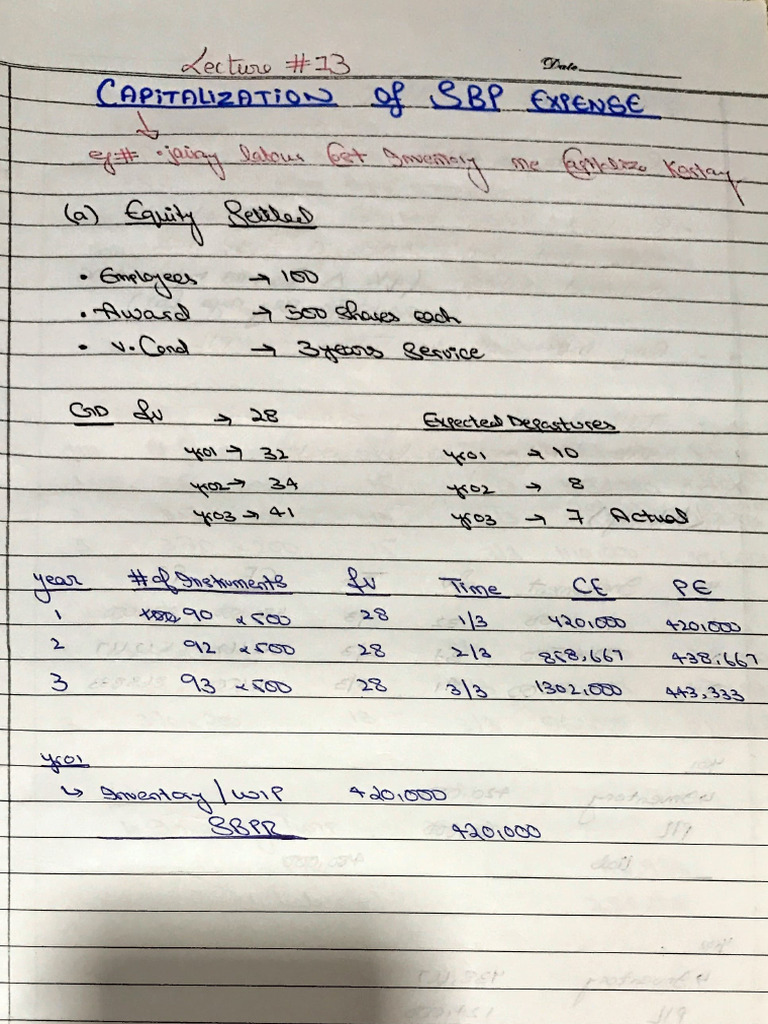 Lecture #13
Date
CAPITALIZATION of SBP EXPENSE
↓
eg# · jaisay labour cost Inventory me Capitalize kartay
(a) Equity Settled
• Employees → 100
• Award → 500 shares each
• V. Cond → 3 years Service
GD fv → 28 Expected Departures
yr01 → 32 yr01 → 10
yr02 → 34 yr02 → 8
yr03 → 41 yr03 → 7 Actual
year # of Instruments fv Time CE PE
1 90 x500 28 1/3 420,000 420,000
2 92 x500 28 2/3 858,667 438,667
3 93 x500 28 3/3 1302,000 443,333
yr01
↳ Inventory / WIP 420,000
SBPR 420,000